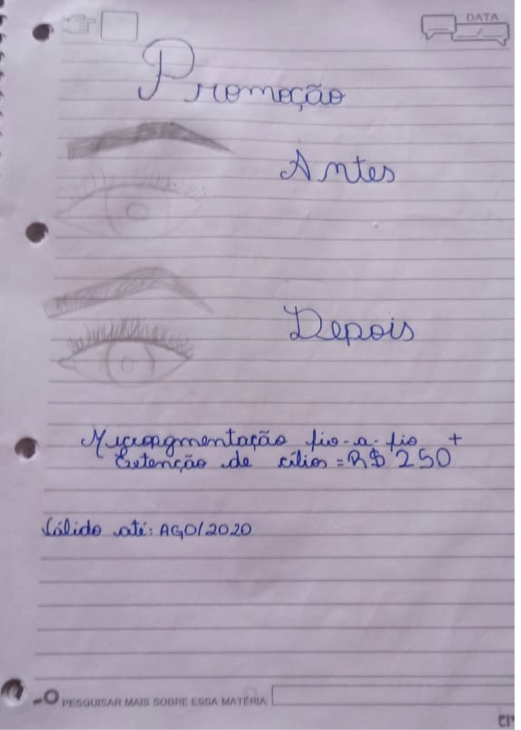 DATA
Promoção
Antes
Depois
Micropgmentação fio-a-fio +
Extenção de cílios = R$ 250
Válido até: AGO/2020
PESQUISAR MAIS SOBRE ESSA MATÉRIA